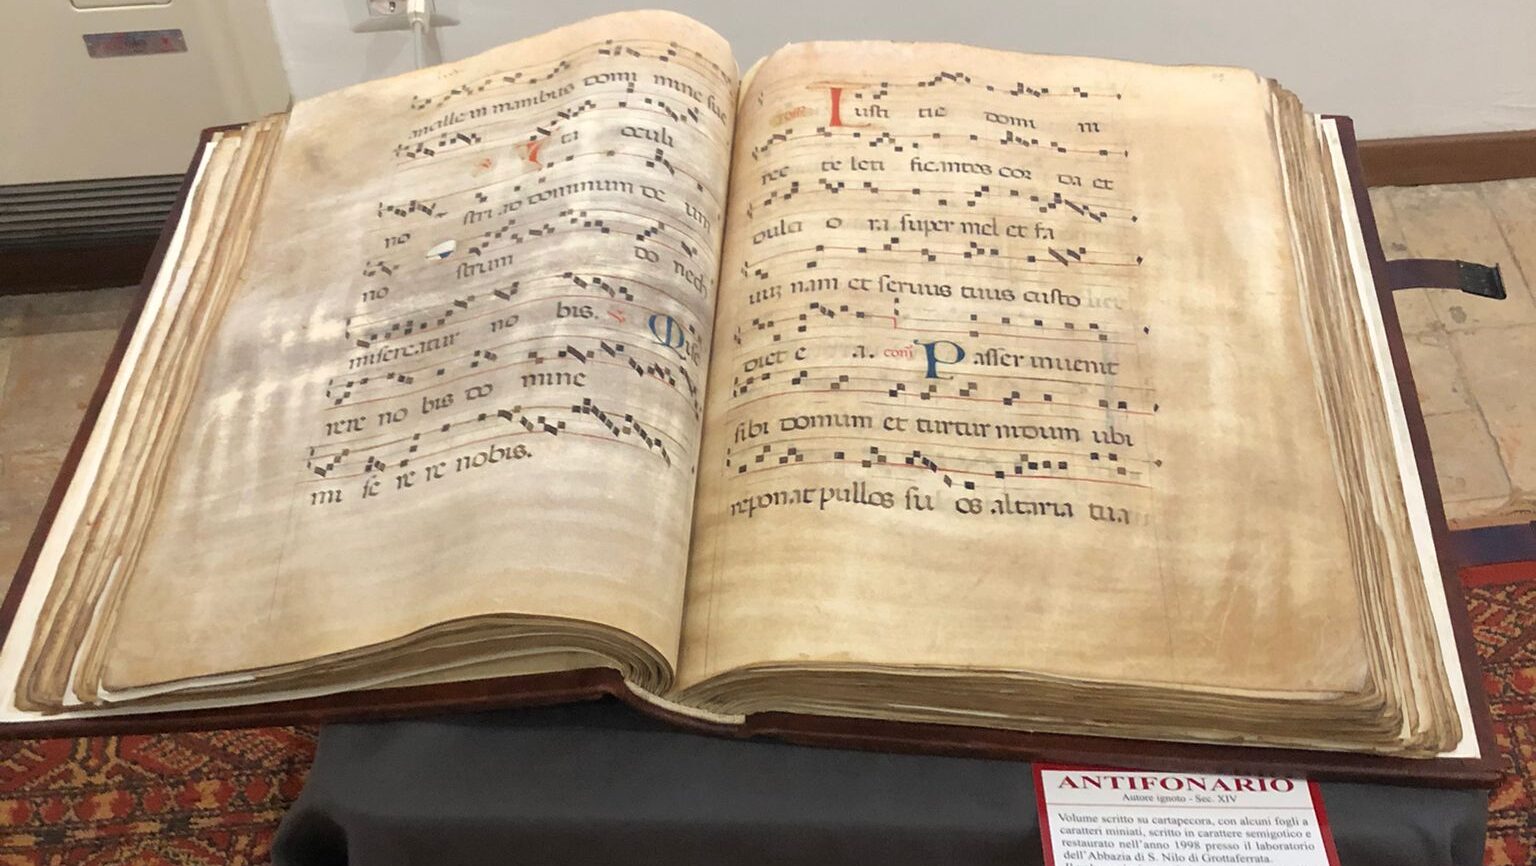 ancille in manibus domi mine sue
Ita oculi
no stri ad dominum de um
no strum do nech
misereatur no bis. Mise
rere no bis do mine
mi se re re nobis.
Iusti tie domi ni
rec te leti ficantes cor da et
dulci o ra super mel et fa
uuz nam et seruus tuus custo
diet e a. com Passer inuenit
sibi domum et turtur nidum ubi
reponat pullos su os altaria tua
ANTIFONARIO
Autore ignoto - Sec. XIV
Volume scritto su cartapecora, con alcuni fogli a
caratteri miniati, scritto in carattere semigotico e
restaurato nell'anno 1998 presso il laboratorio
dell'Abbazia di S. Nilo di Grottaferrata.